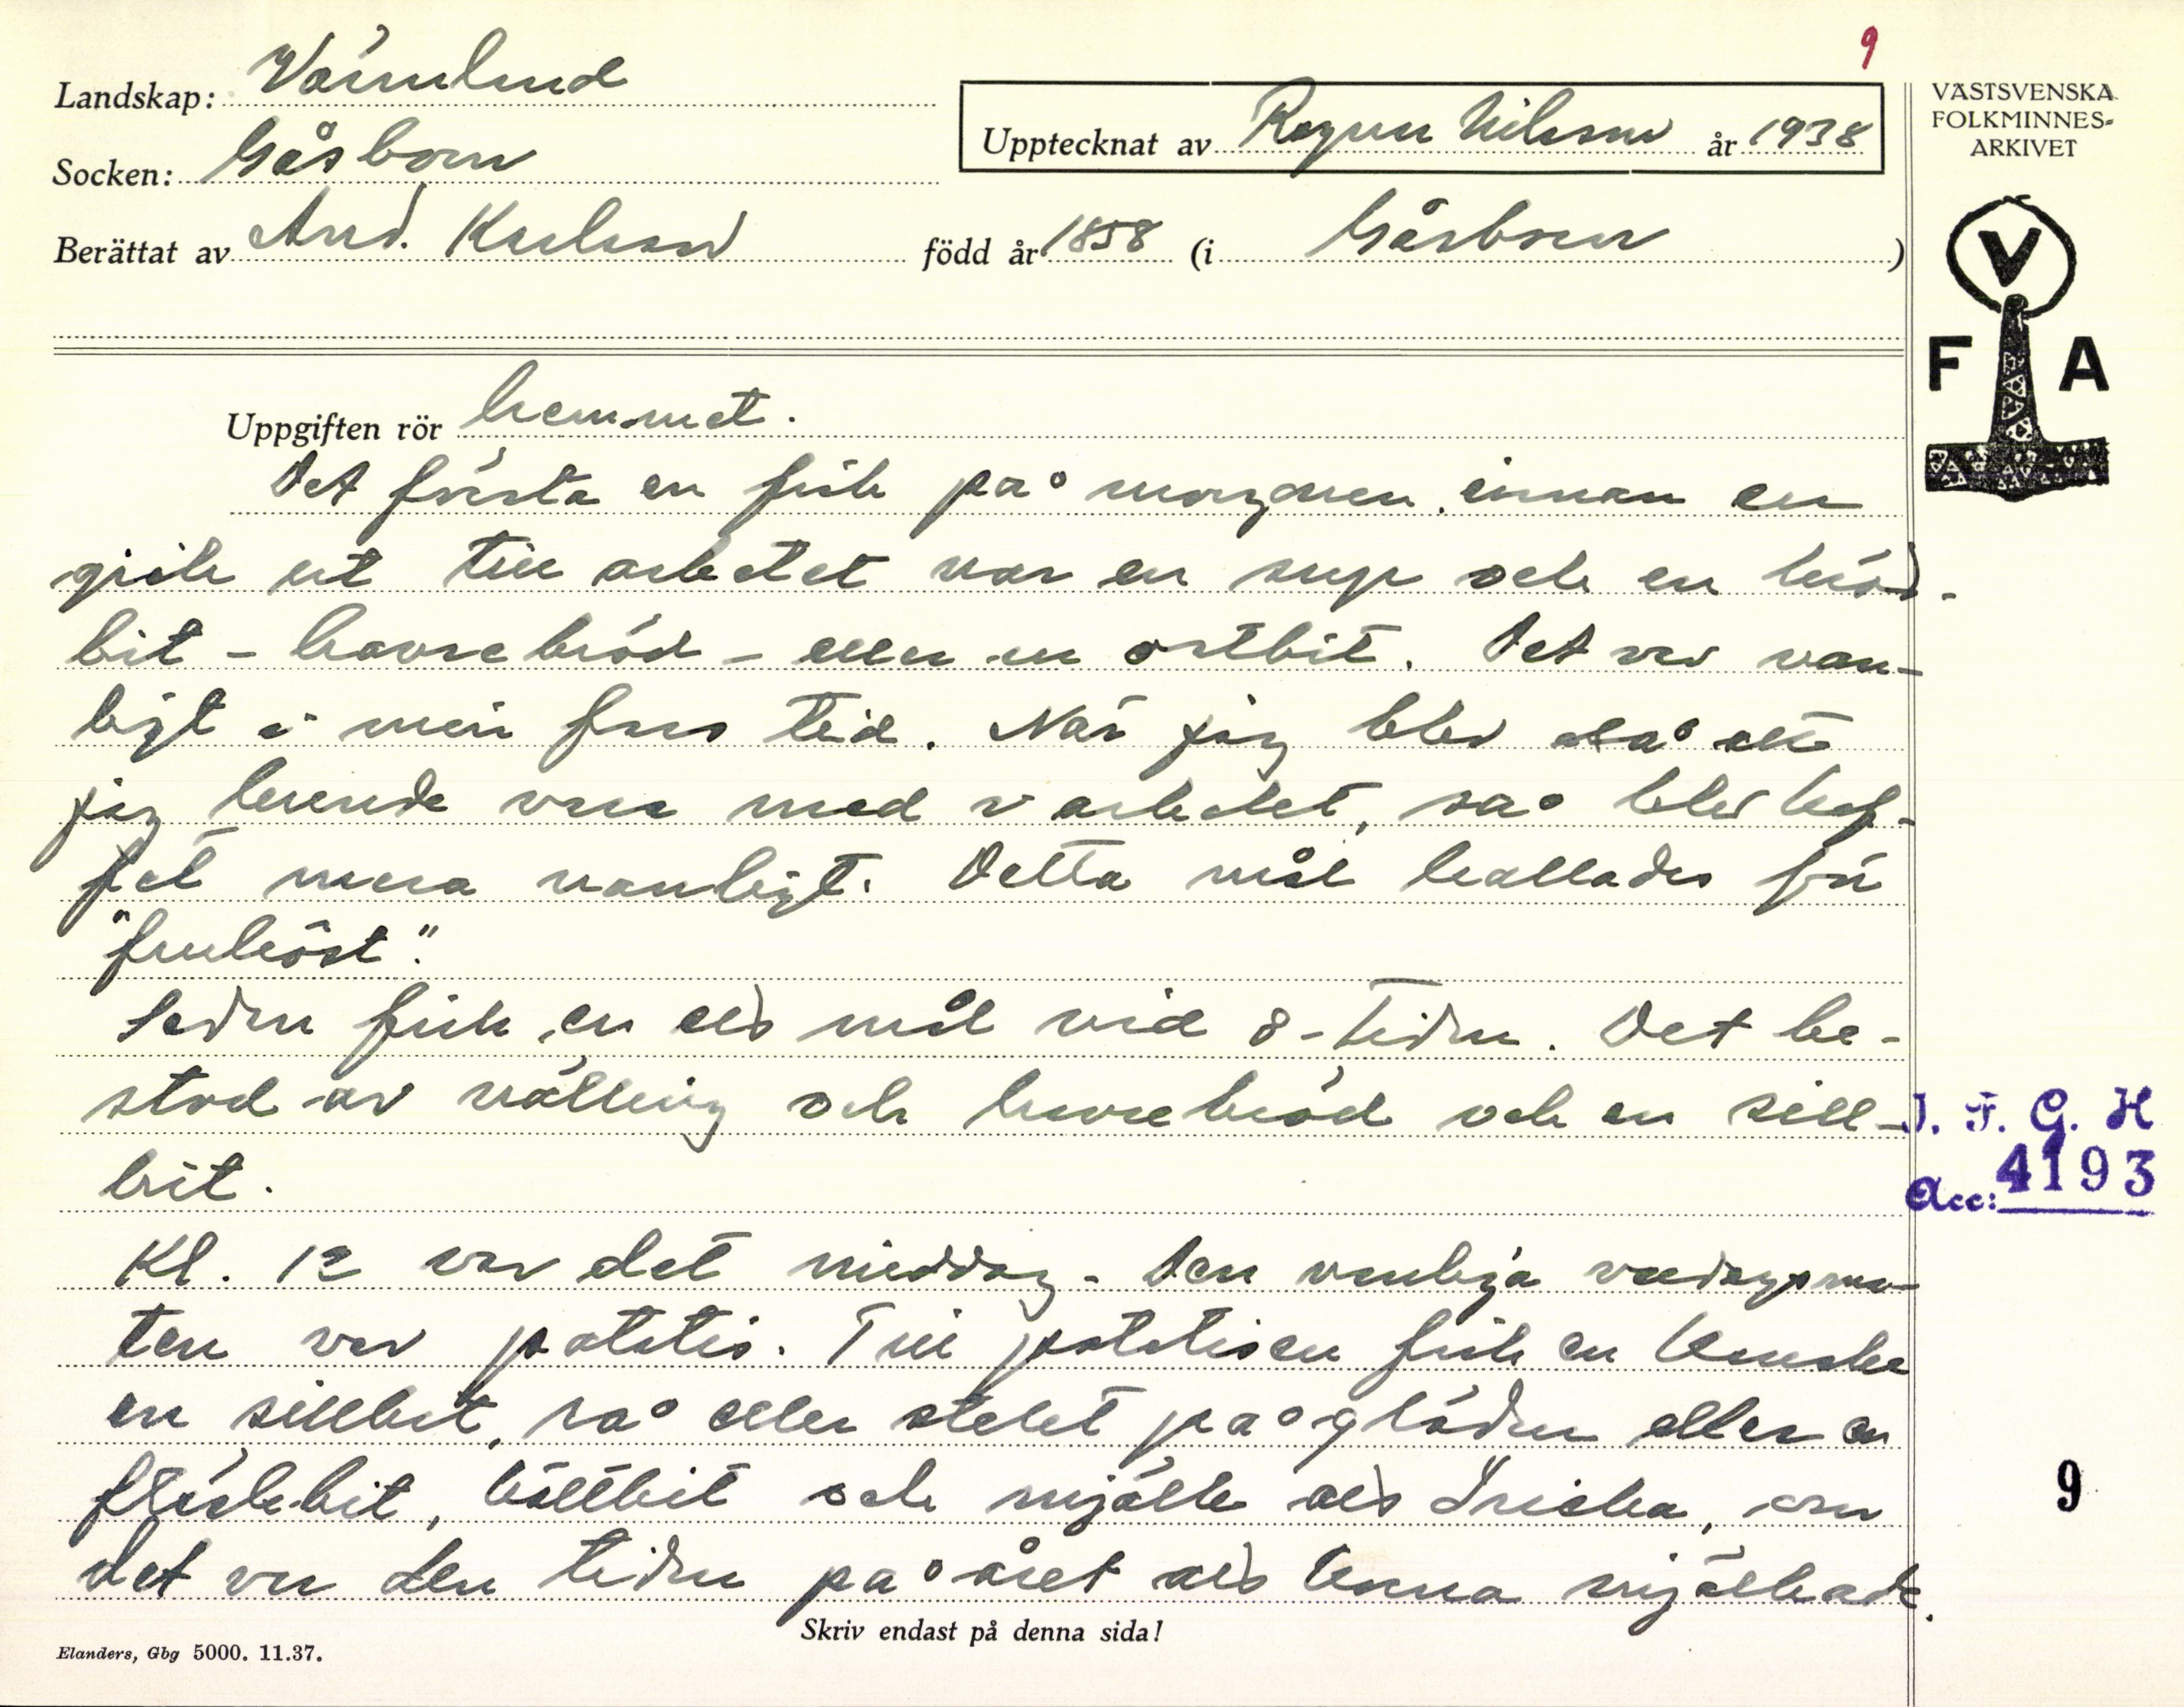 9
Landskap: Värmland
Socken: Gåsborn
Upptecknat av Ragnar Nilsson år 1938
Berättat av And. Karlsson född år 1858 (i Gåsborn)
VÄSTSVENSKA
FOLKMINNES-
ARKIVET
V
F A
Uppgiften rör hemmet.
Det första en fick på morgonen innan en
gick ut till arbetet var en sup och en bröd-
bit - havrebröd - eller en ostbit. Det var van-
ligt i min fars tid. När jag blev så att
jag kunde vara med i arbetet, så blev kaf-
fet mera vanligt. Detta mål kallades för
"frukost".
Sedan fick en ett mål vid 8-tiden. Det be-
stod av välling och havrebröd och en sill-
bit.
J. F. G. H
Acc: 4193
Kl. 12 var det middag. Den vanliga vardagsma-
ten var potatis. Till potatisen fick en kanske
en sillbit, rå eller stekt på glöden eller en
fläskbit, köttbit och mjölk att dricka, om
det var den tiden på året att korna mjölkade.
9
Skriv endast på denna sida!
Elanders, Gbg 5000. 11.37.